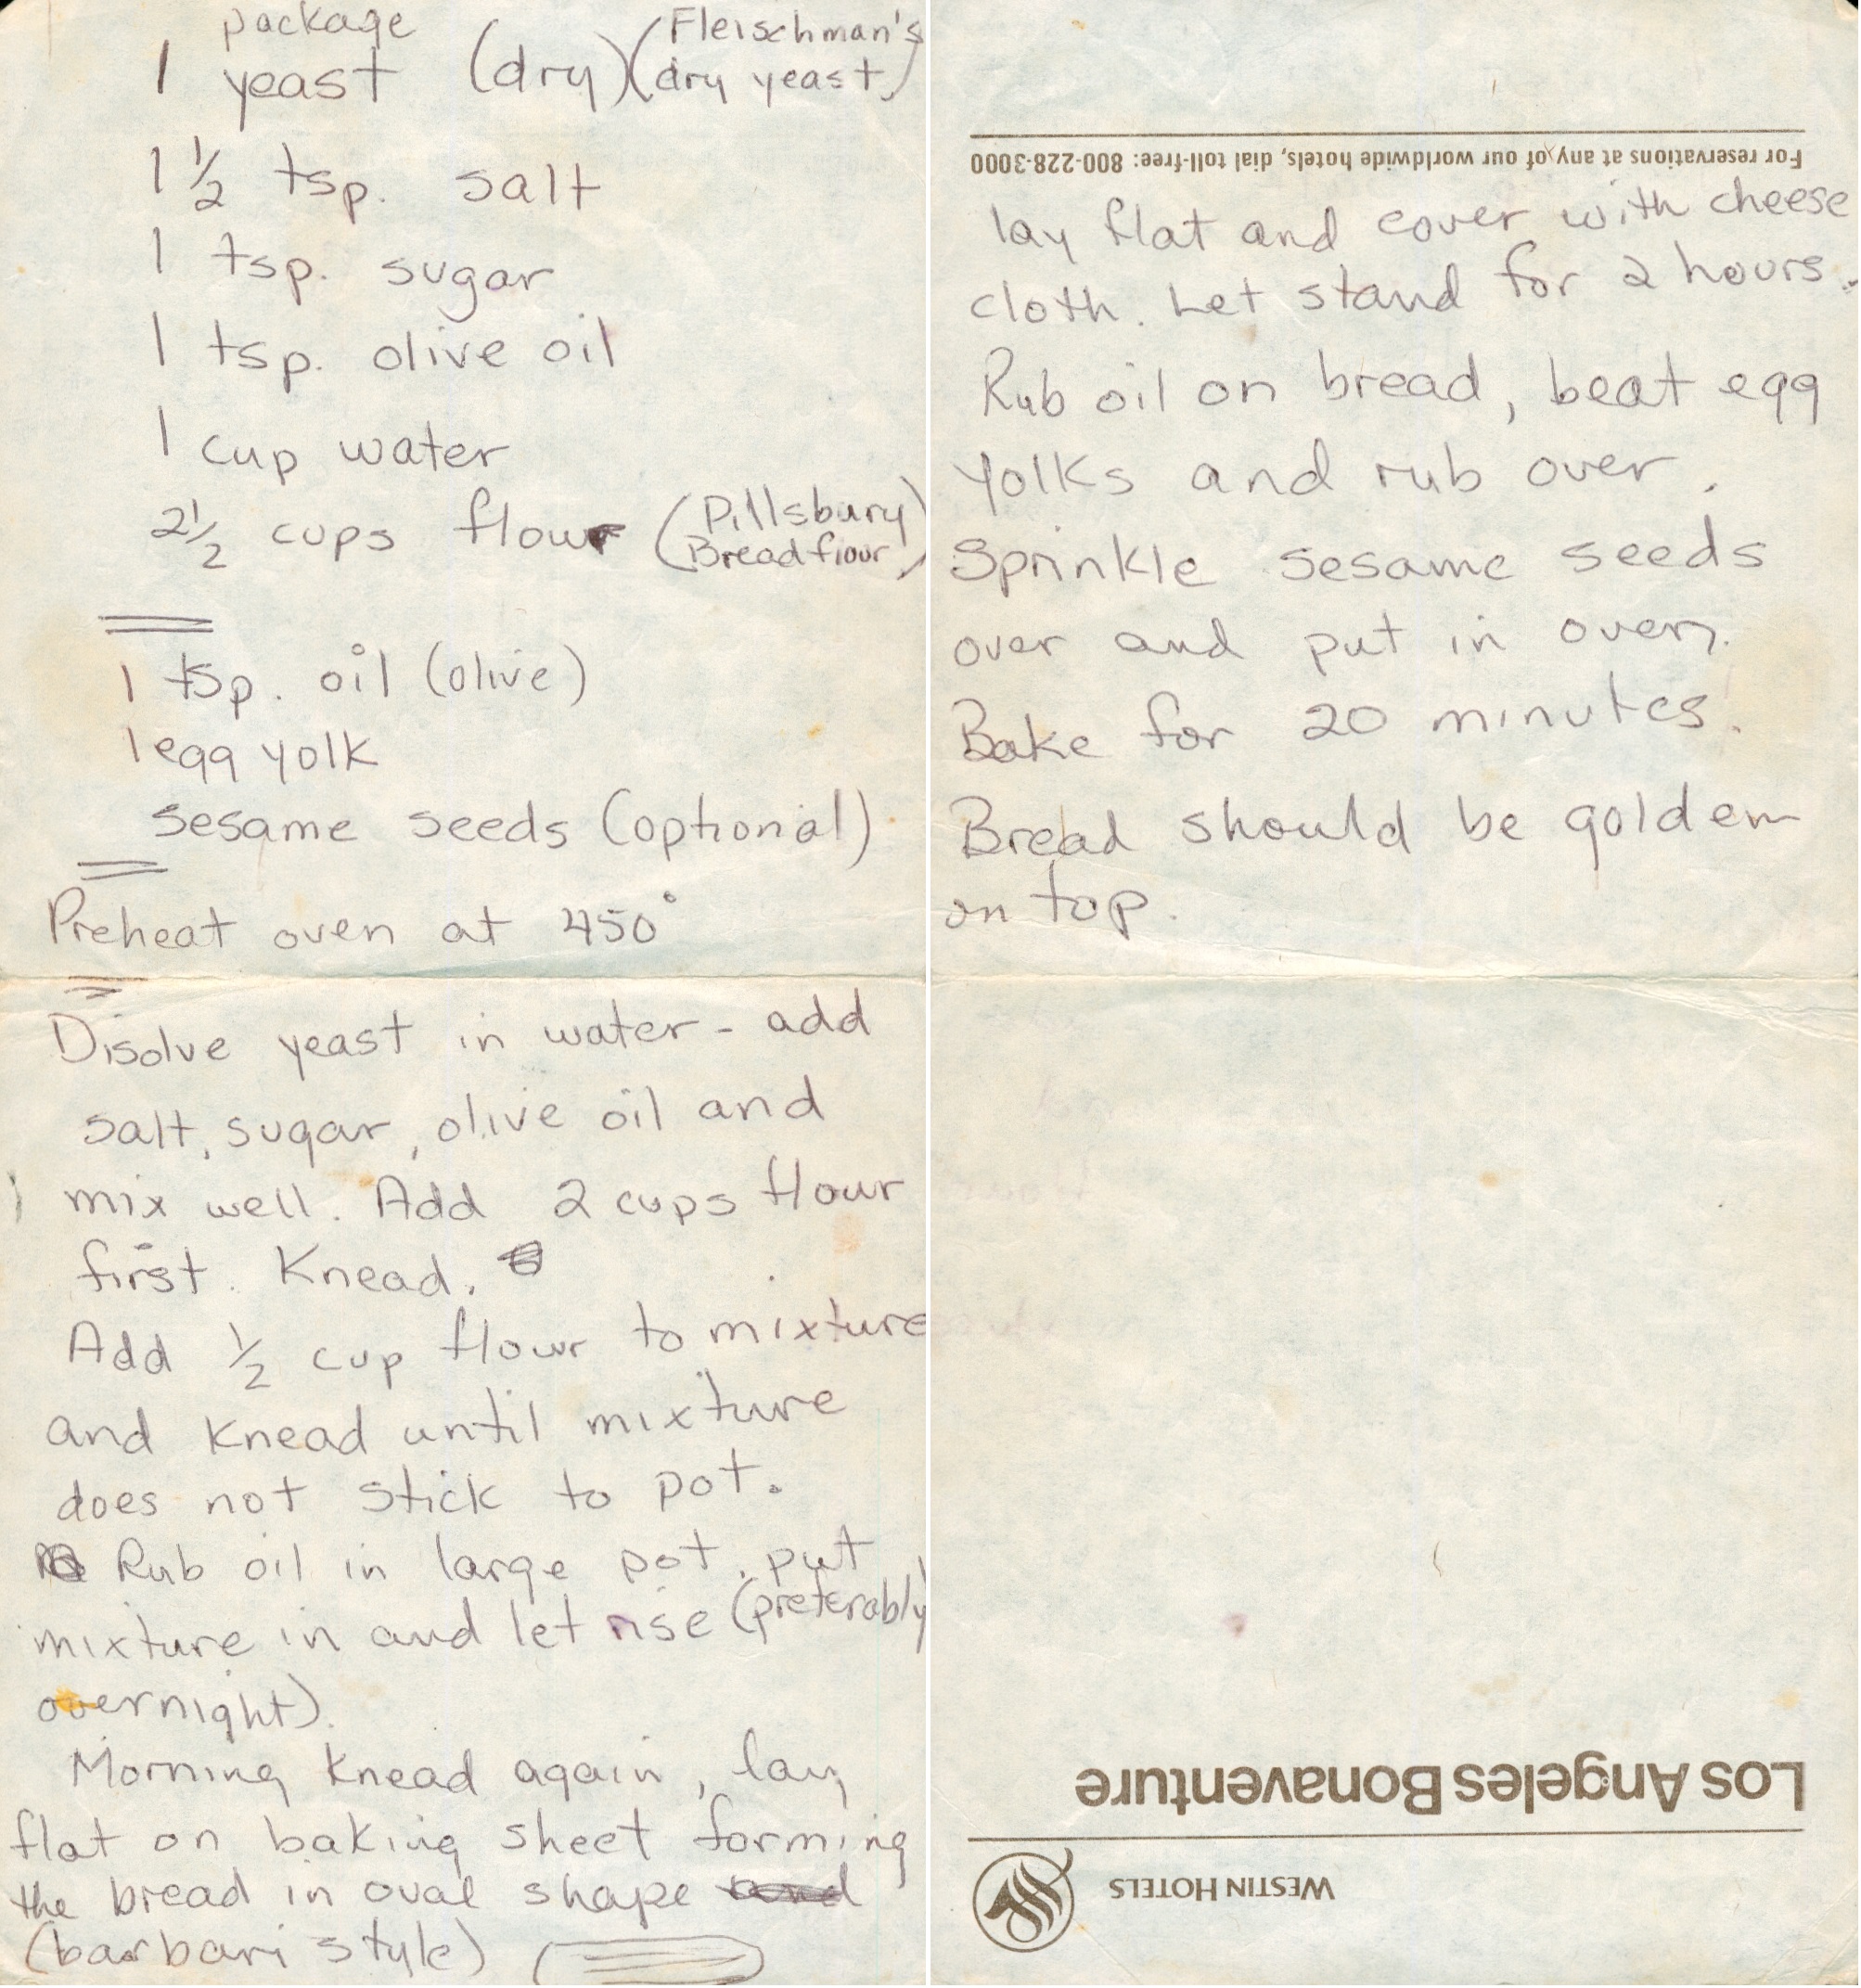 package
1 yeast (dry) (Fleischman's
dry yeast)
1 1/2 tsp. salt
1 tsp. sugar
1 tsp. olive oil
1 cup water
2 1/2 cups flour (Pillsbury
Bread flour)
1 tsp. oil (olive)
1 egg yolk
sesame seeds (optional)
Preheat oven at 450°
Disolve yeast in water - add
salt, sugar, olive oil and
mix well. Add 2 cups flour
first. Knead.
Add 1/2 cup flour to mixture
and knead until mixture
does not stick to pot.
Rub oil in large pot, put
mixture in and let rise (preferably
overnight).
Morning knead again, lay
flat on baking sheet forming
the bread in oval shape and
(barbari style)
For reservations at any of our worldwide hotels, dial toll-free: 800-228-3000
lay flat and cover with cheese
cloth. Let stand for 2 hours.
Rub oil on bread, beat egg
yolks and rub over.
Sprinkle sesame seeds
over and put in oven.
Bake for 20 minutes.
Bread should be golden
on top.
Los Angeles Bonaventure
WESTIN HOTELS